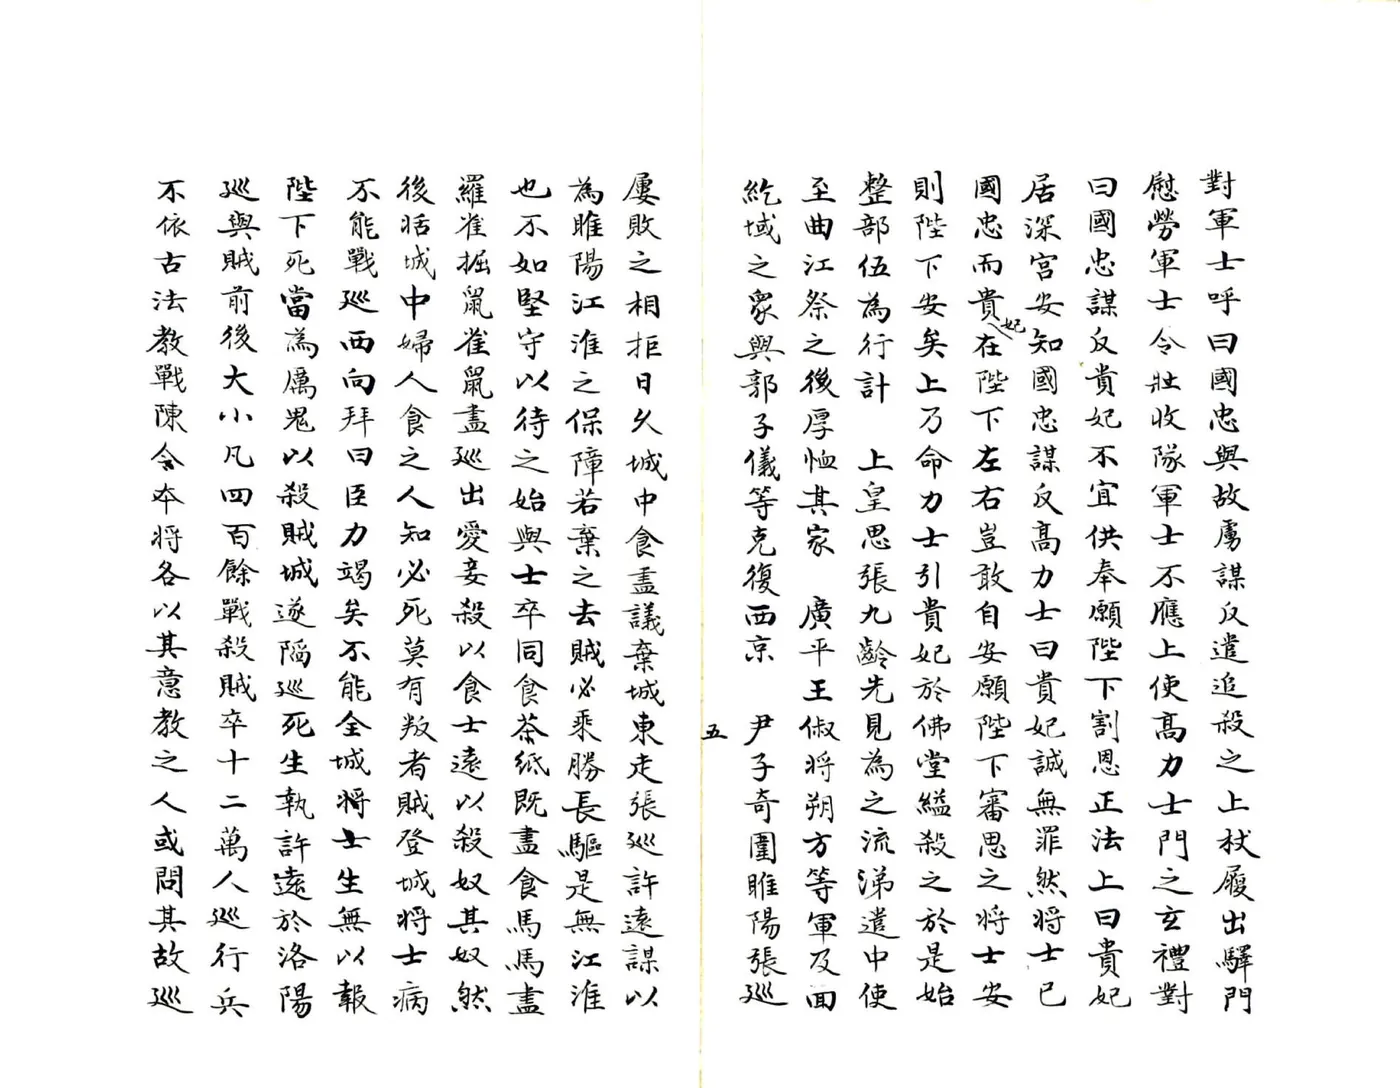 對軍士呼曰國忠與故虜謀反遣追殺之上杖履出驛門
慰勞軍士令壯收隊軍士不應上使高力士門之玄禮對
曰國忠謀反貴妃不宜供奉願陛下割恩正法上曰貴妃
居深宮安知國忠謀反高力士曰貴妃誠無罪然将士已
國忠而貴妃在陛下左右豈敢自安願陛下審思之将士安
則陛下安矣上乃命力士引貴妃於佛堂縊殺之於是始
整部伍為行計　上皇思張九齡先見為之流涕遣中使
至曲江祭之後厚恤其家　廣平王俶将朔方等軍及面
紇域之眾與郭子儀等克復西京　尹子奇圍睢陽張巡
五
屢敗之相拒日久城中食盡議棄城東走張巡許遠謀以
為睢陽江淮之保障若棄之去賊必乘勝長驅是無江淮
也不如堅守以待之始與士卒同食茶紙既盡食馬馬盡
羅雀掘鼠雀鼠盡巡出愛妾殺以食士遠以殺奴其奴然
後括城中婦人食之人知必死莫有叛者賊登城将士病
不能戰巡西向拜曰臣力竭矣不能全城将士生無以報
陛下死當為厲鬼以殺賊城遂陷巡死生執許遠於洛陽
巡與賊前後大小凡四百餘戰殺賊卒十二萬人巡行兵
不依古法教戰陳令本将各以其意教之人或問其故巡